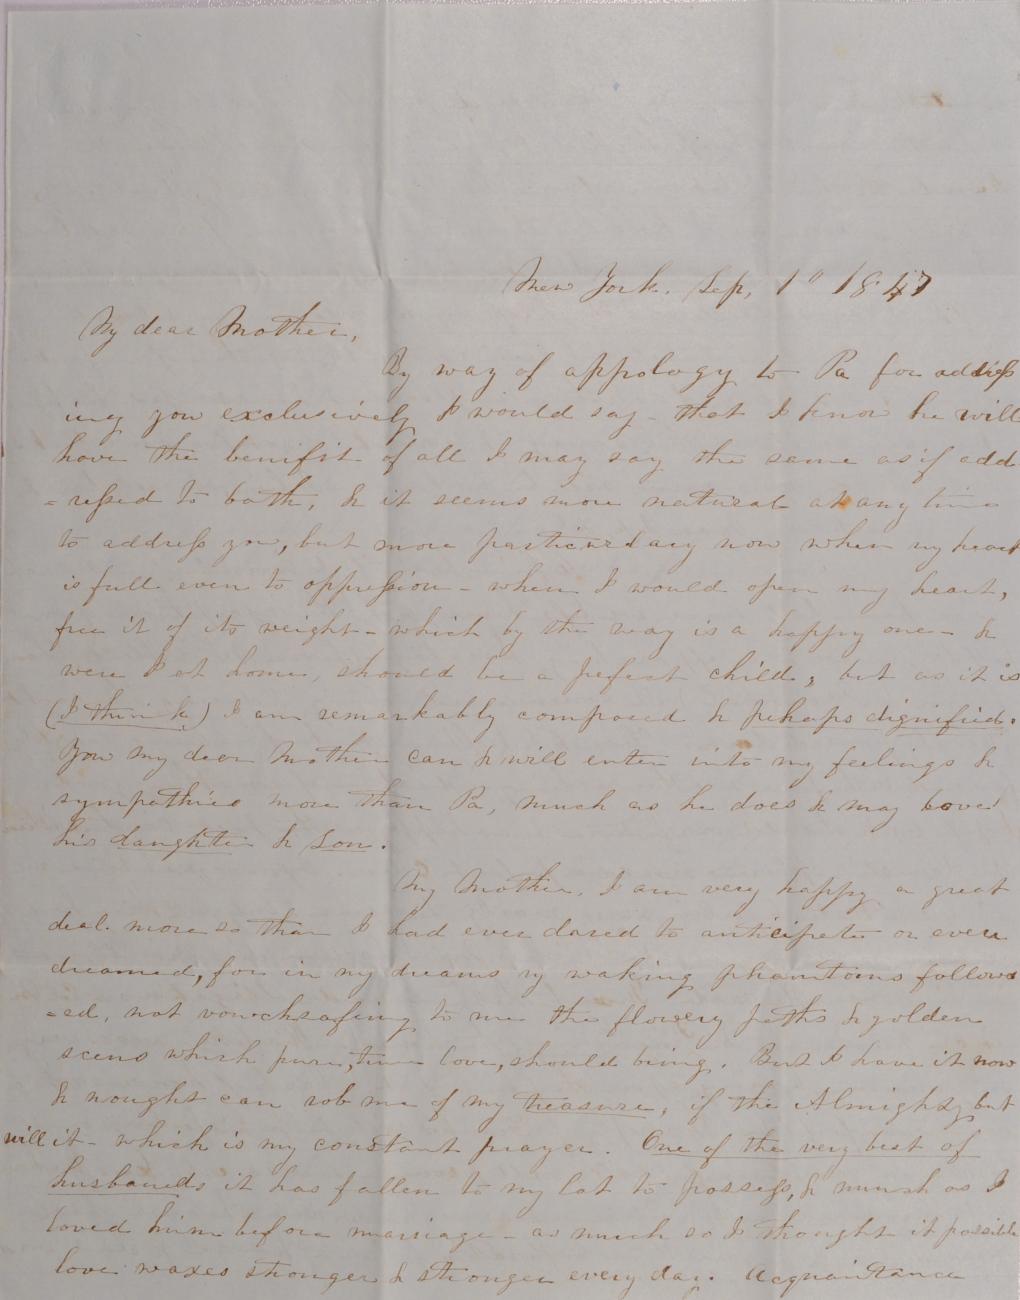 New York. Sep, 1" 1847
My dear Mother,
By way of appology to Pa for address
ing you exclusively I would say - that I know he will
have the benifit of all I may say the same as if add
=ressed to both, & it seems more natural at any time
to address you, but more particularly now when my heart
is full even to oppression - when I would open my heart,
free it of its weight - which by the way is a happy one - &
were I at home, should be a pefect child, but as it is
(I think) I am remarkably composed & pehaps dignified.
You my dear Mother can & will enter into my feelings &
sympathies more than Pa, much as he does & may love
his daughter & son.
My Mother, I am very happy a great
deal more so than I had ever dared to anticipate or even
dreamed, for in my dreams my waking phantoms follow
=ed, not vouchsafing to me the flowery paths & golden
scens which pure, true love, should bring. But I have it now
& nought can rob me of my treasure, if the Almighty but
will it - which is my constant prayer. One of the very best of
husbands it has fallen to my lot to possess, & much as I
loved him before marriage - as much so I thought it possible
love waxes stronger & stronger every day. Acquaintance